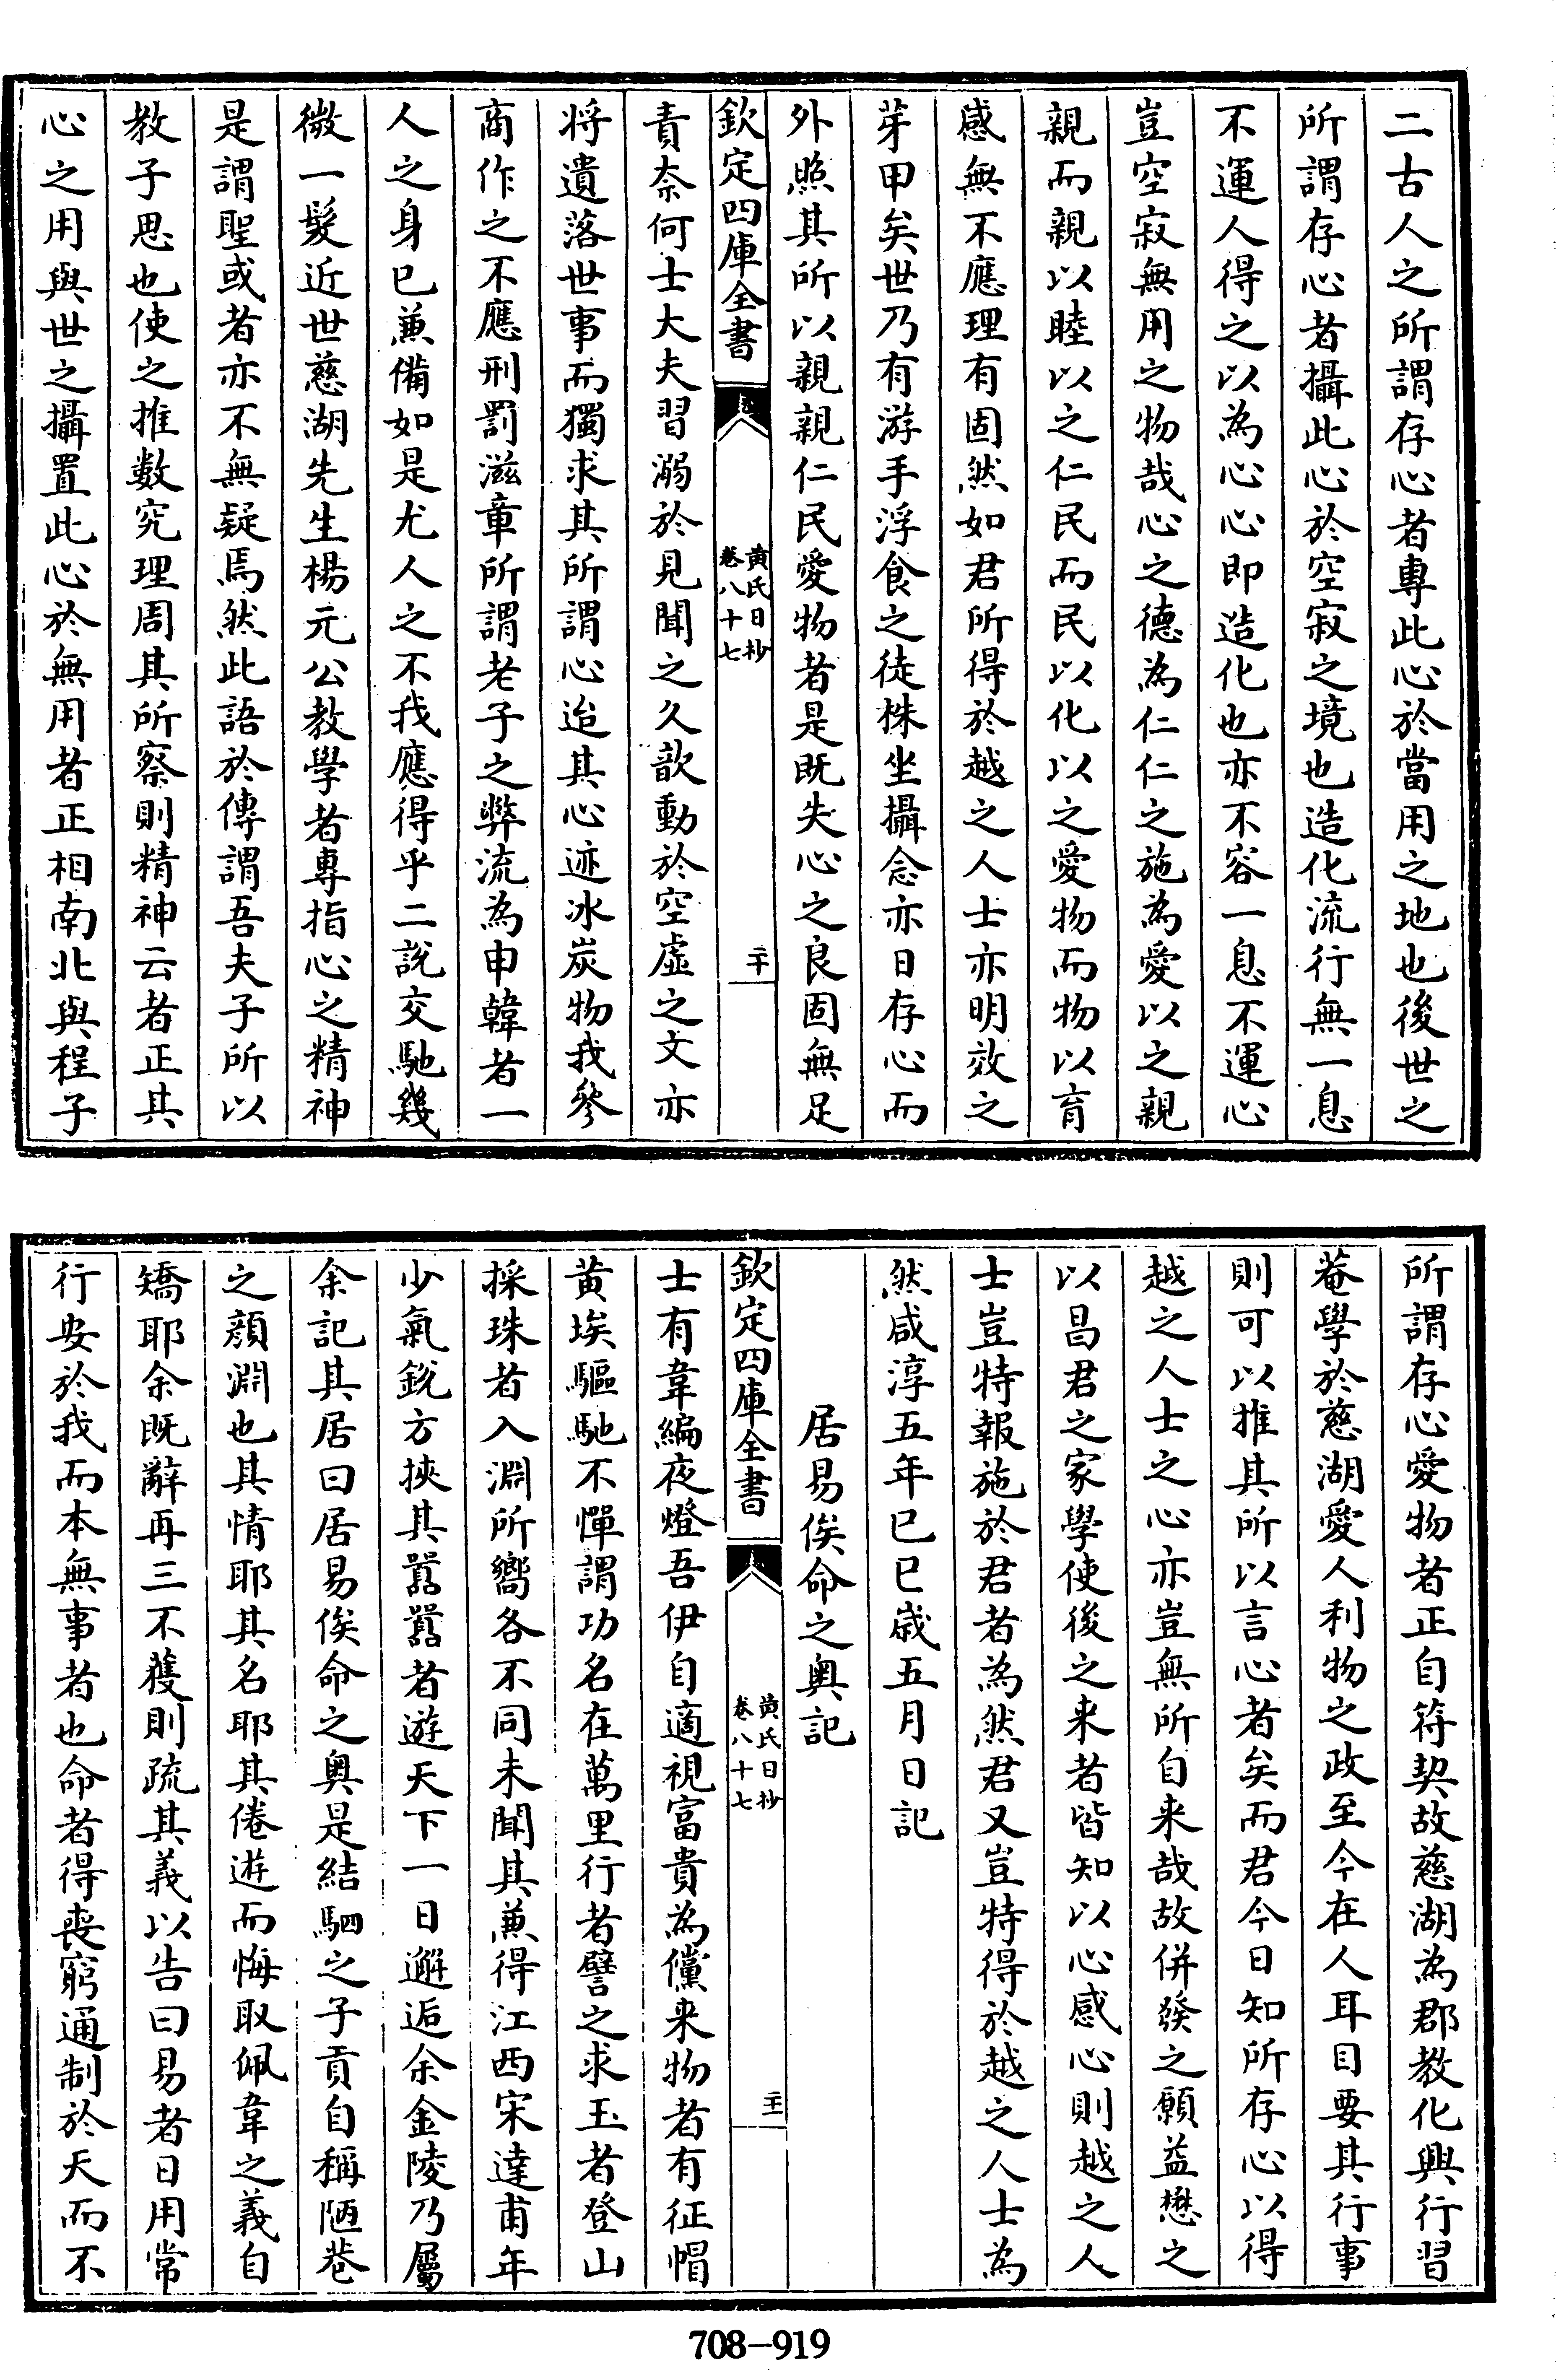 二古人之所謂存心者專此心於當用之地也後世之
所謂存心者攝此心於空寂之境也造化流行無一息
不運人得之以為心心即造化也亦不容一息不運心
豈空寂無用之物哉心之德為仁仁之施為愛以之親
親而親以睦以之仁民而民以化以之愛物而物以育
感無不應理有固然如君所得於越之人士亦明效之
芽甲矣世乃有游手浮食之徒株坐攝念亦日存心而
外照其所以親親仁民愛物者是既失心之良固無足
欽定四庫全書
黃氏日抄
卷八十七
二十
責奈何士大夫習溺於見聞之久歆動於空虛之文亦
將遺落世事而獨求其所謂心迨其心迹冰炭物我參
商作之不應刑罰滋章所謂老子之弊流為申韓者一
人之身已兼備如是尤人之不我應得乎二說交馳幾
微一髮近世慈湖先生楊元公教學者專指心之精神
是謂聖或者亦不無疑焉然此語於傳謂吾夫子所以
教子思也使之推數究理周其所察則精神云者正其
心之用與世之攝置此心於無用者正相南北與程子
所謂存心愛物者正自符契故慈湖為郡教化興行習
菴學於慈湖愛人利物之政至今在人耳目要其行事
則可以推其所以言心者矣而君今日知所存心以得
越之人士之心亦豈無所自来哉故併發之願益懋之
以昌君之家學使後之来者皆知以心感心則越之人
士豈特報施於君者為然君又豈特得於越之人士為
然咸淳五年已巳歲五月日記
居易俟命之奥記
欽定四庫全書
黃氏日抄
卷八十七
二十一
士有韋編夜燈吾伊自適視富貴為儻来物者有征帽
黄埃驅馳不憚謂功名在萬里行者譬之求玉者登山
採珠者入淵所嚮各不同未聞其兼得江西宋達甫年
少氣銳方挾其囂囂者遊天下一日邂逅余金陵乃屬
余記其居曰居易俟命之奥是結駟之子貢自稱陋巷
之顏淵也其情耶其名耶其倦遊而悔取佩韋之義自
矯耶余既辭再三不獲則疏其義以告曰易者日用常
行安於我而本無事者也命者得丧窮通制於天而不
708-919